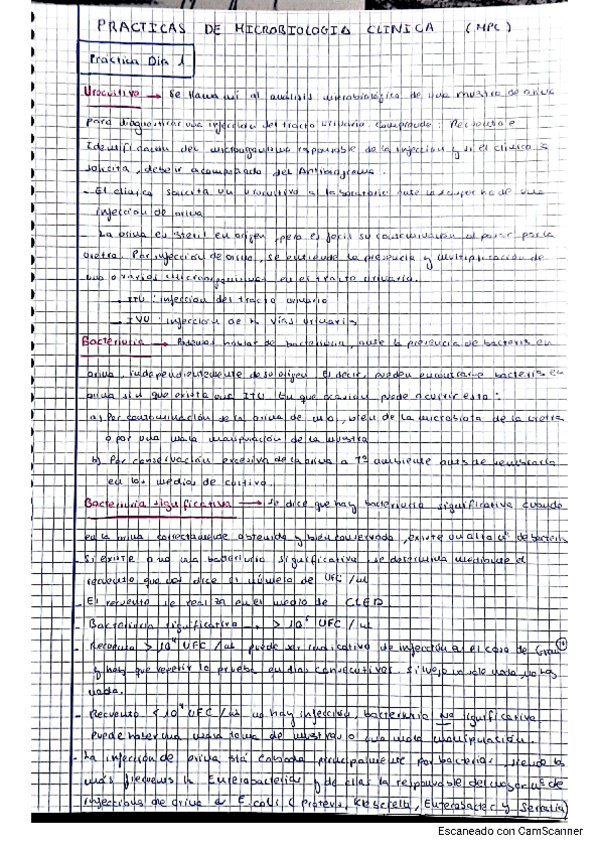 PRACTICAS DE MICROBIOLOGIA CLINICA (MPC)
Practica Dia 1
Urocultivo → Se llama así al análisis microbiológico de una muestra de orina
para diagnosticar una infeccion del tracto urinario. Comprende: Recuento e
Identificacion del microorganismo responsable de la infección y si el clínico
solicita, debeir acompañado del Antibiograma.
- El clínico solicita un urocultivo al laboratorio ante la sospecha de una
infeccion de orina
- La orina es steril en origen, pero es facil su contaminacion al pasar por la
uretra. Por infeccion de orina, se entiende la presencia y multiplicacion de
uno o varios microorganismos en el tracto urinario.
- ITU: infeccion del tracto urinario
- IVU: infeccion de vías urinarias
Bacteriuria → Podemos hablar de bacteriuria, ante la presencia de bacterias en
orina, independientemente de su origen. Es decir, pueden encontrarse bacterias en
orina sin que exista una ITU. En que ocasion puede ocurrir esto:
a) Por contaminación de la orina de uno, bien de la microbiota de la uretra
o por una mala manipulación de la muestra
b) Por conservacion excesiva de la orina a Tª ambiente antes de sembrarla
en los medios de cultivo.
Bacteriuria significativa → Se dice que hay bacteriuria significativa cuando
en la orina correctamente obtenida y bien conservada, existe un alto nº de bacterias
- Si existe o no una bacteriuria significativa se determina mediante el
recuento que nos dice el número de UFC/ml
- El recuento se realiza en el medio de CLED
- Bacteriuria significativa > UFC/ml
- Recuento > 10⁴ UFC/ml puede ser indicativo de infeccion en el caso de Gram
y hay que repetir la prueba en dias consecutivos.
nada.
- Recuento < 10⁴ UFC/ml no hay infección, bacteriuria No significativa
puede haber una mala toma de muestras o una mala manipulación.
- La infección de orina está causada principalmente por bacterias, siendo las
más frecuents la Enterobacterias y de ellas la responsable del mayor nº de
infecciones de orina es E.coli (Proteus, Klebsiella, Enterobacter y Serratia)
Escaneado con CamScanner